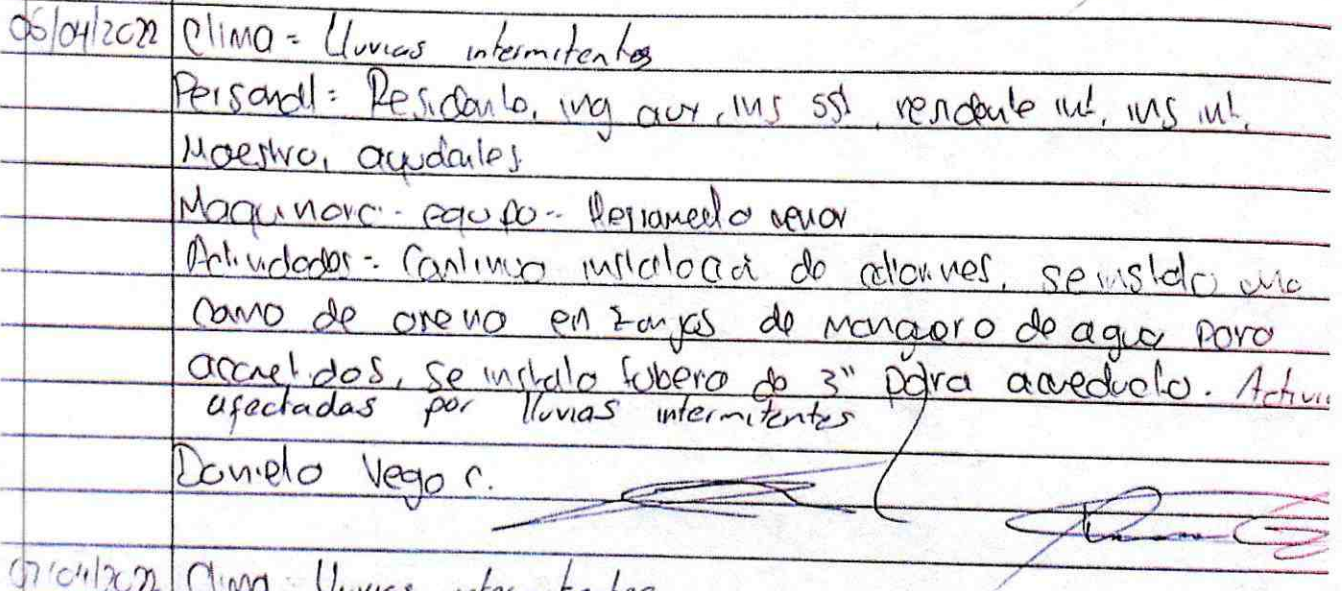 06/04/2022 Clima = Lluvias intermitentes
Personal = Residente, ing aux, ins sst, residente int, ins int,
Maestro, ayudantes.
Maquinara - equipo - Herramienta menor
Actividades = Continuo instalacai de adoquines, se instalo una
cama de arena en zanjas de manguera de agua para
acometidas, se instalo tuberia de 3" para acueducto. Activi
afectadas por lluvias intermitentes
Daniela Vega C.
07/04/2022 Clima = Lluvias intermitentes